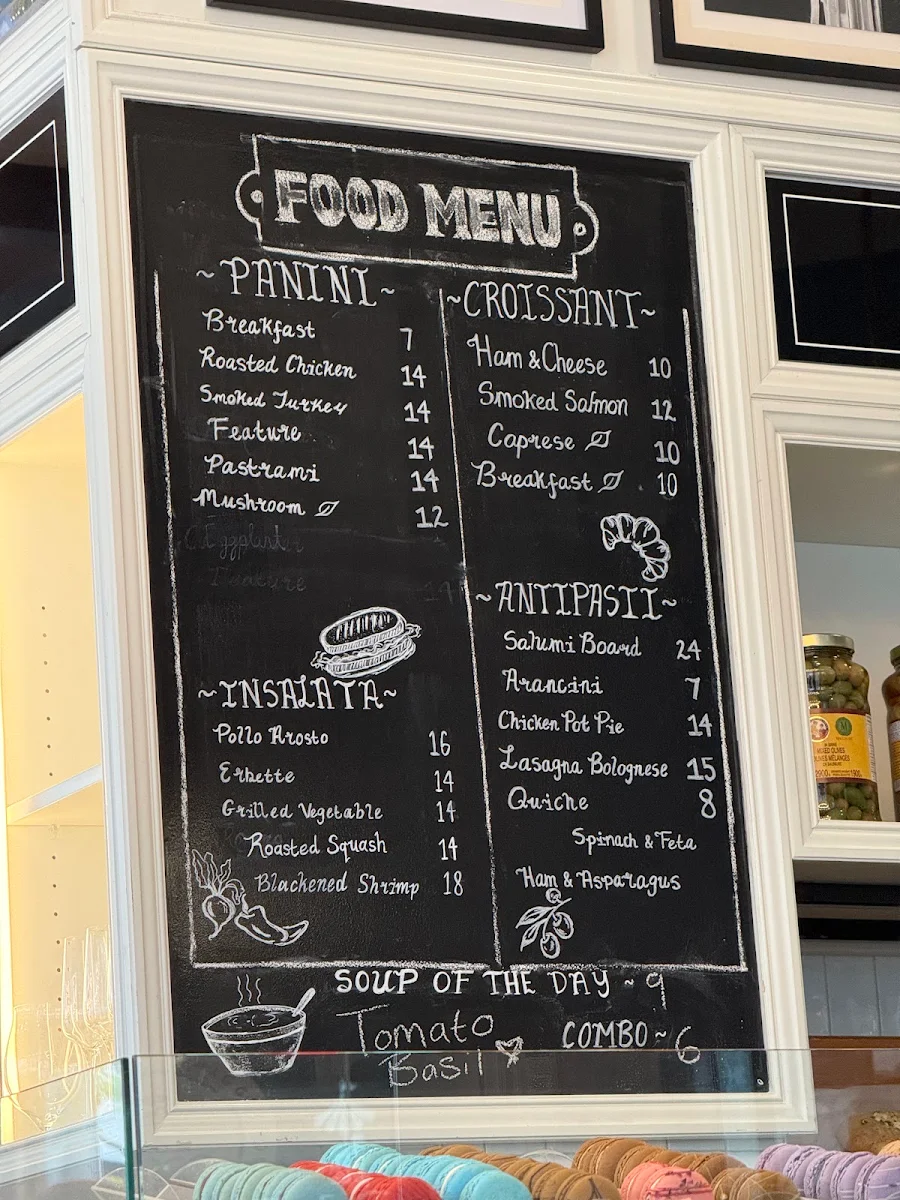 FOOD MENU
~PANINI~
Breakfast 7
Roasted Chicken 14
Smoked Turkey 14
Feature 14
Pastrami 14
Mushroom 12
Feature 14
~INSALATA~
Pollo Arosto 16
Erbette 14
Grilled Vegetable 14
Roasted Squash 14
Blackened Shrimp 18
~CROISSANT~
Ham & Cheese 10
Smoked Salmon 12
Caprese 10
Breakfast 10
~ANTIPASTI~
Salumi Board 24
Arancini 7
Chicken Pot Pie 14
Lasagna Bolognese 15
Quiche 8
Spinach & Feta
Ham & Asparagus
SOUP OF THE DAY ~ 9
Tomato
Basil
COMBO ~ 6
MIXED OLIVES